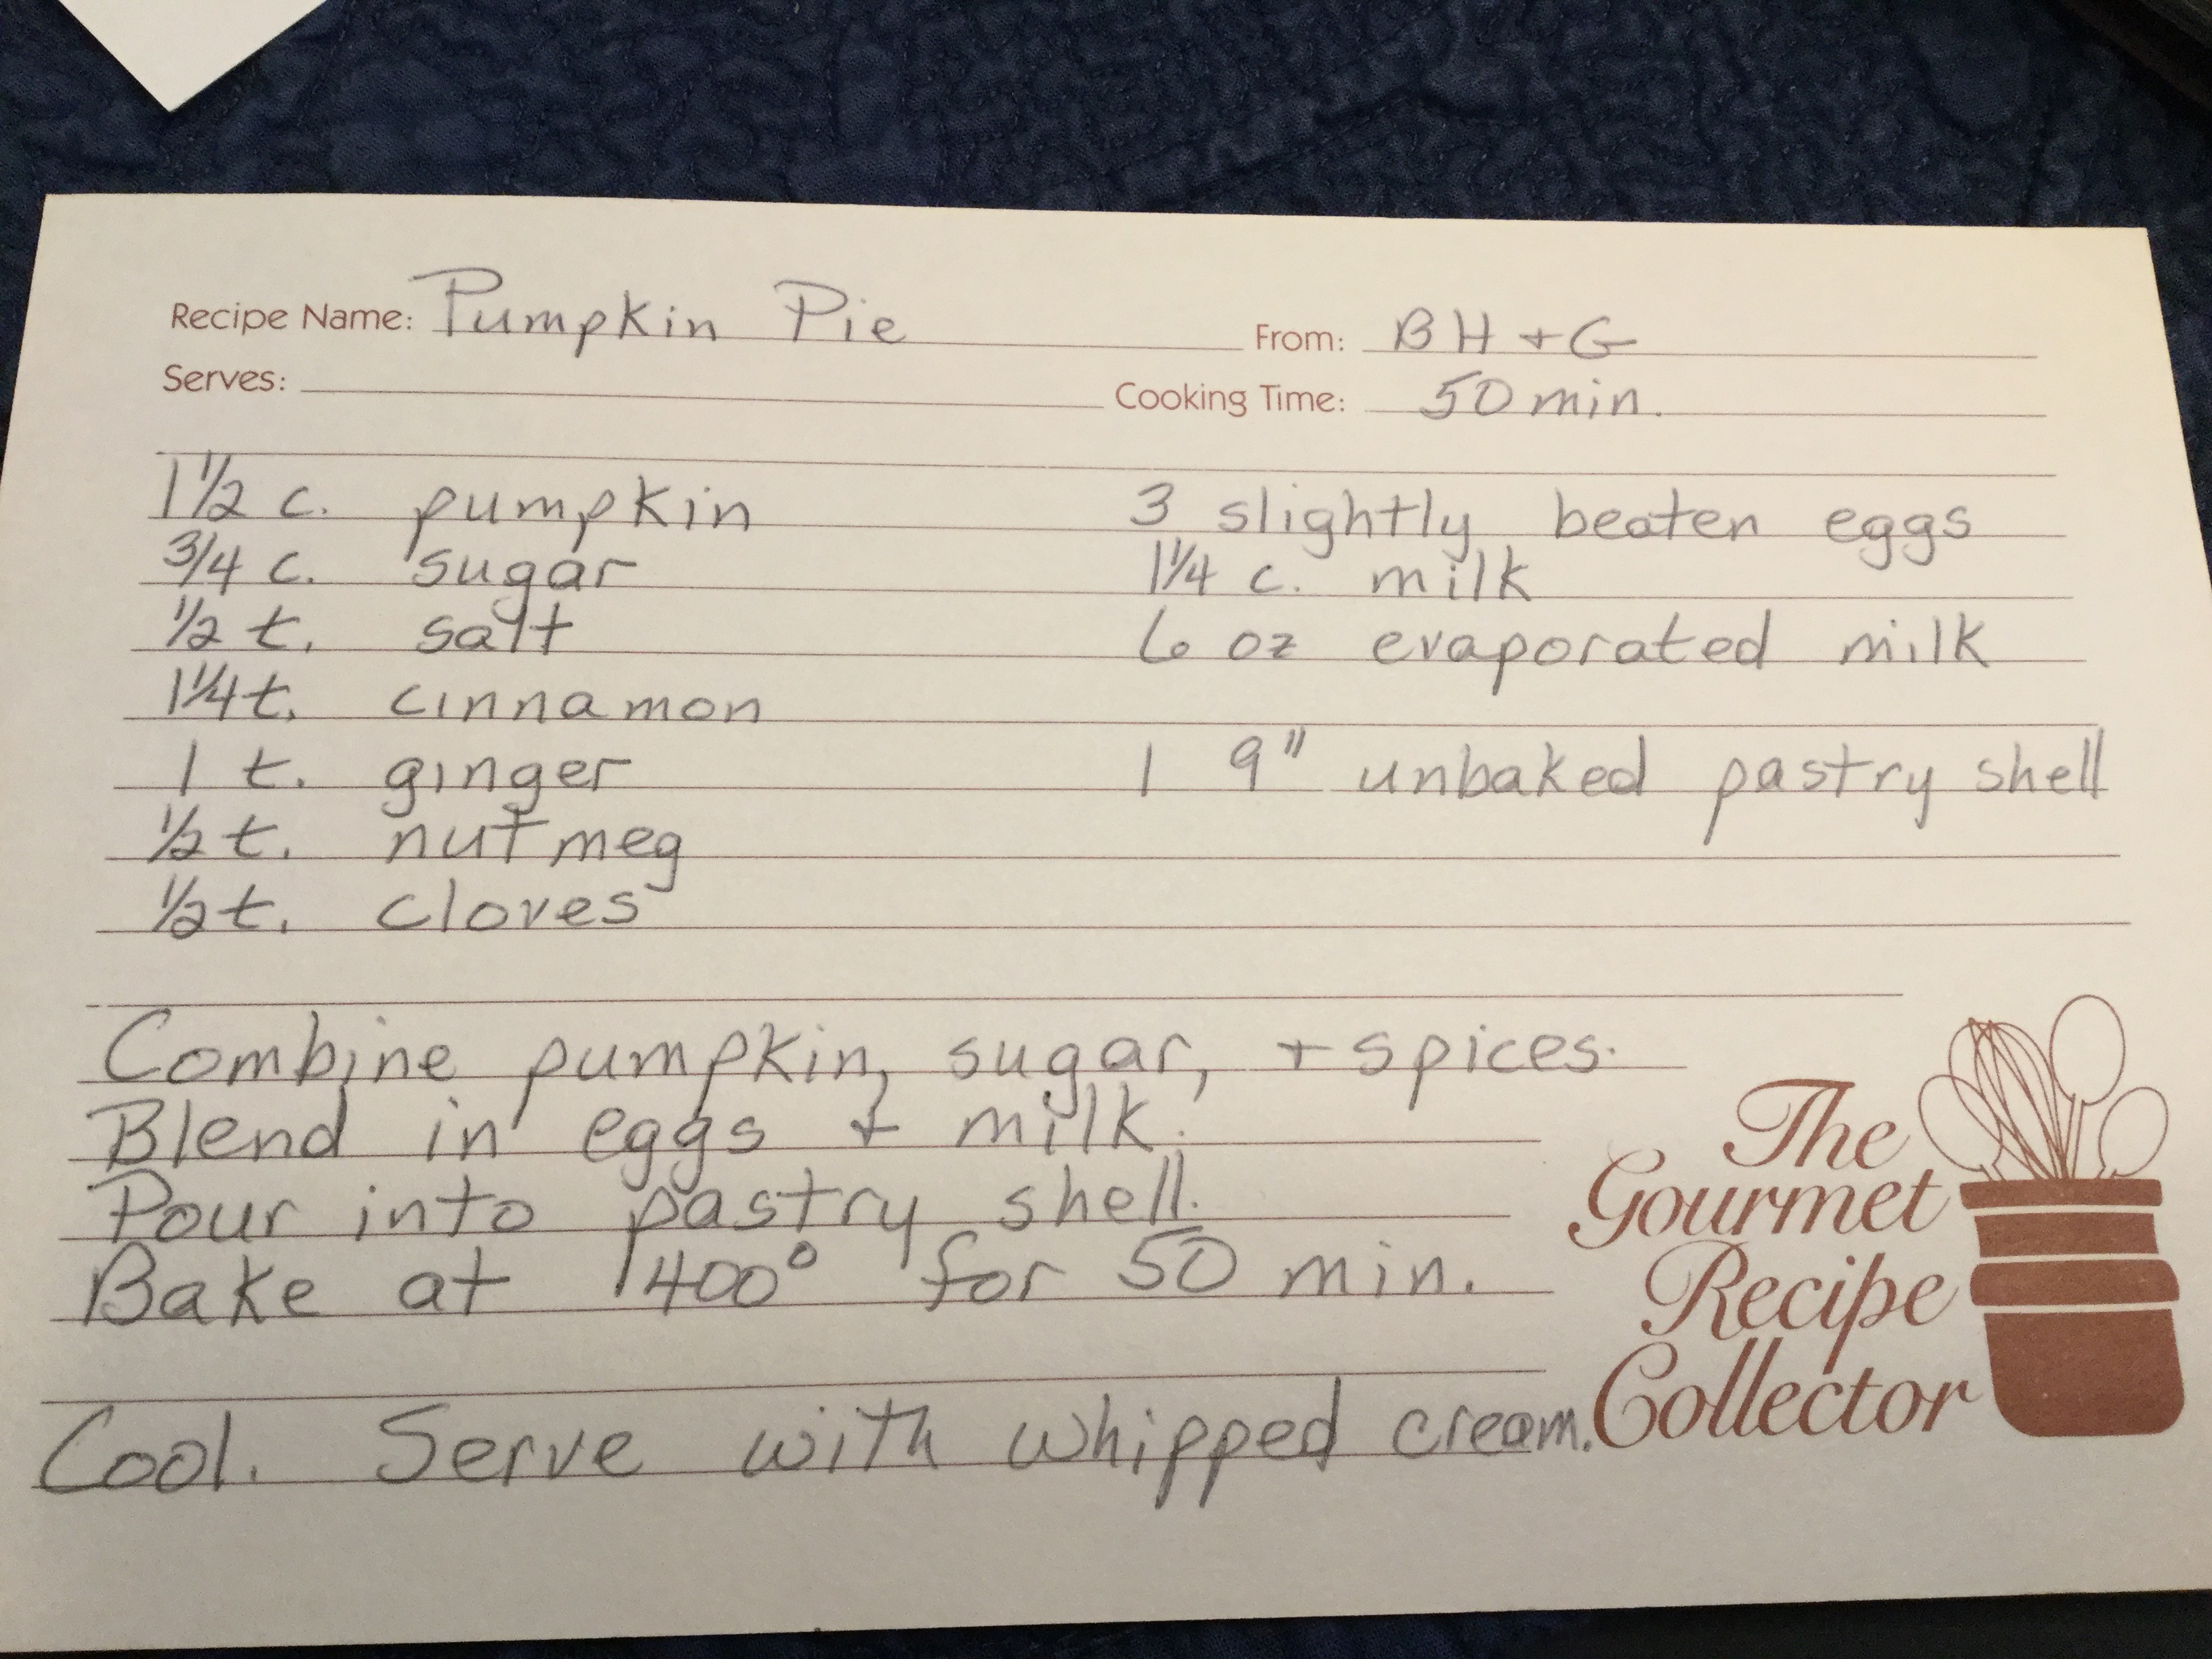 Recipe Name: Pumpkin Pie From: BH+G
Serves: Cooking Time: 50 min.
1 1/2 c. pumpkin
3/4 c. sugar
1/2 t. salt
1 1/4 t. cinnamon
1 t. ginger
1/2 t. nutmeg
1/2 t. cloves
3 slightly beaten eggs
1 1/4 c. milk
6 oz evaporated milk
1 9" unbaked pastry shell
Combine pumpkin, sugar, + spices.
Blend in eggs + milk.
Pour into pastry shell.
Bake at 400° for 50 min.
Cool. Serve with whipped cream.
The
Gourmet
Recipe
Collector